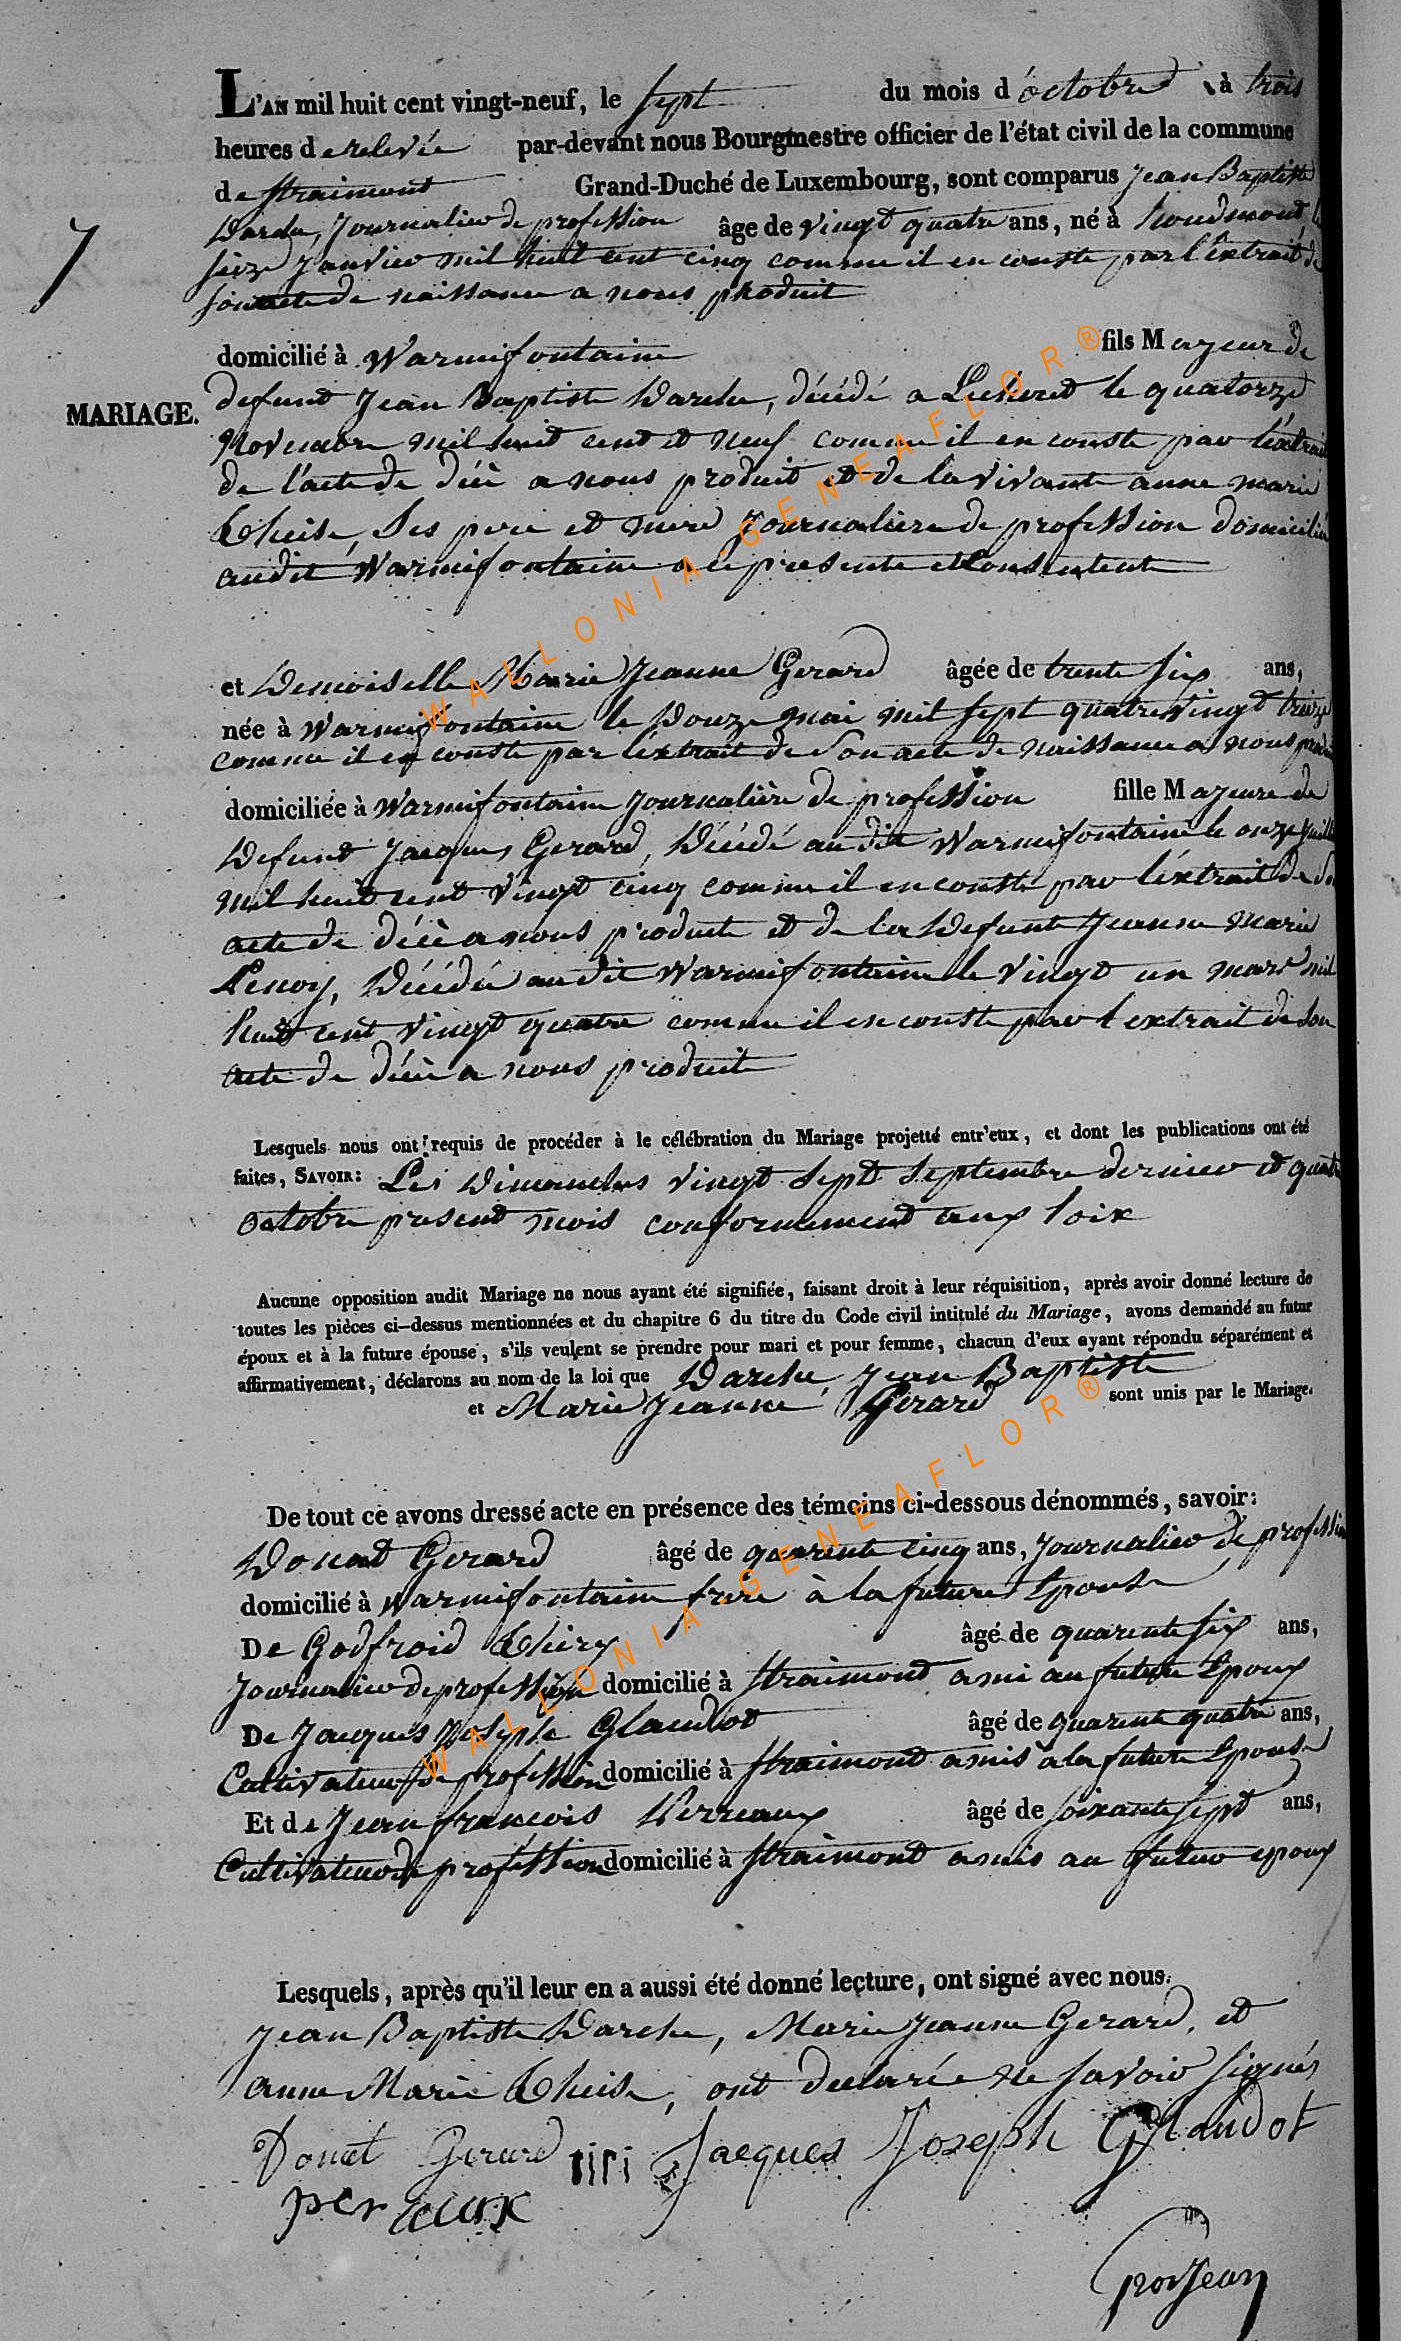 L'AN mil huit cent vingt-neuf, le sept du mois d'octobre à trois
heures de relevée par-devant nous Bourgmestre officier de l'état civil de la commune
de straimont Grand-Duché de Luxembourg, sont comparus Jean Baptiste
Darche, Journalier de profession âge de vingt quatre ans, né à houdmont, le
seize Janvier mil huit cent cinq comme il en conste par l'extrait de
son acte de naissance a nous produit
7
domicilié à Warmifontaine fils Majeur de
MARIAGE.
defunt Jean Baptiste Darche, décédé a le quatorze
Novembre mil huit cent et neuf comme il en conste par l'extrait
de l'acte de décè a nous produit et de la vivante anne marie
theise, Ses pere et mere Journaliere de profession domiciliée
audit Warmifontaine a ce presente et Consentent
et Demoiselle Marie Jeanne Gerard âgée de trente six ans,
née à Warmifontaine le Douze mai mil sept quatre vingt treize
comme il en conste par l'extrait de Son acte de naissance a nous produit
domiciliée à Warmifontaine Journalière de profession fille Majeure de
Defunt Jacques Gerard, Décédé au dit Warmifontaine le onze Juillet
mil huit cent vingt cinq comme il en conste par l'extrait de Son
acte de décè a nous produite et de la Defunte Jeanne Marie
Lenoy, Décédée audit Warmifontaine le vingt un mars mil
huit cent vingt quatre comme il en conste par l'extrait de Son
acte de décè a nous produite
Lesquels nous ont requis de procéder à le célébration du Mariage projetté entr'eux, et dont les publications ont été
faites, SAVOIR: Les Dimanches vingt Sept Septembre dernier et quatre
Octobre present mois conformement aux loix
Aucune opposition audit Mariage ne nous ayant été signifiée, faisant droit à leur réquisition, après avoir donné lecture de
toutes les pièces ci-dessus mentionnées et du chapitre 6 du titre du Code civil intitulé du Mariage, avons demandé au futur
époux et à la future épouse, s'ils veulent se prendre pour mari et pour femme, chacun d'eux ayant répondu séparément et
affirmativement, déclarons au nom de la loi que Darche, Jean Baptiste
et Marie Jeanne Gerard sont unis par le Mariage.
De tout ce avons dressé acte en présence des témoins ci-dessous dénommés, savoir:
Donat Gerard âgé de quarente cinq ans, Journalier de profession
domicilié à Warmifontaine frere à la future Epouse
De Godfroid thiry âgé de quarente six ans,
Journalier de profession domicilié à straimont ami au future Epoux
De Jacques Joseph Glaudot âgé de quarente quatre ans,
Cultivateur de profession domicilié à straimont amis a la future Epouse
Et de Jean francois Perreaux âgé de soixante sept ans,
Cultivateur de profession domicilié à straimont amis au futur epoux
Lesquels, après qu'il leur en a aussi été donné lecture, ont signé avec nous.
Jean Baptiste Darche, Marie Jeanne Gerard, et
anne Marie theise, ont declarée ne savoir signés
Donat Gerard tiri Jacques Joseph Glaudot
peraux
Grosjean
WALLONIA-GENEAFLOR®
WALLONIA-GENEAFLOR®